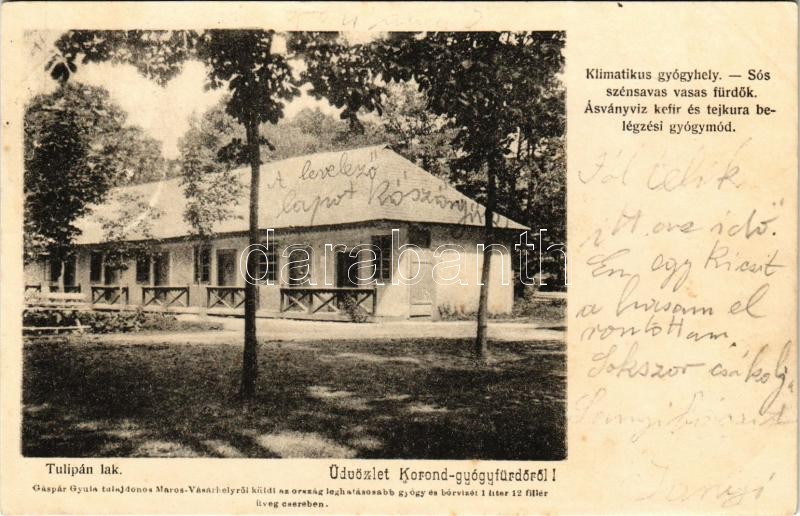 Klimatikus gyógyhely. — Sós
szénsavas vasas fürdők.
Ásványviz kefir és tejkura be-
légzési gyógymód.
A levelező
lapot köszönjük
Jól telik
itt az idő.
Én egy kicsit
a húsam el
rontottam
Sokszor csókolja
Sanyi
darabanth
Tulipán lak.
Üdvözlet Korond-gyógyfürdőről!
Gáspár Gyula tulajdonos Maros-Vásárhelyről küldi az ország leghatásosabb gyógy és bórvizét 1 liter 12 fillér
üveg cserében.